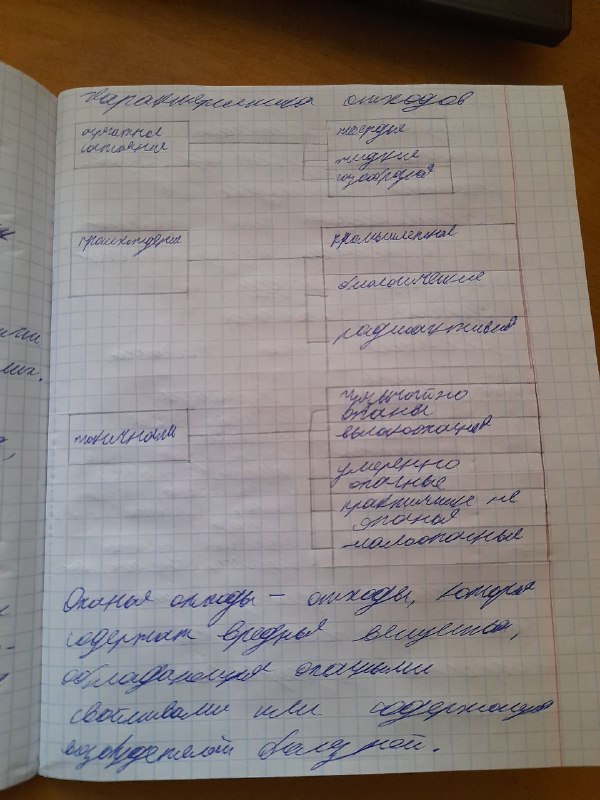 Характеристика отходов
агрегатное
состояние
твердые
жидкие
газообразные
происхождение
промышленные
биологические
радиоактивные
токичность
чрезвычайно
опасны
высокоопасные
умеренно
опасные
практически не
опасные
малоопасные
Опасные отходы — отходы, которые
содержат вредные вещества,
обладающие опасными
свойствами или содержащие
возбудителей болезней.